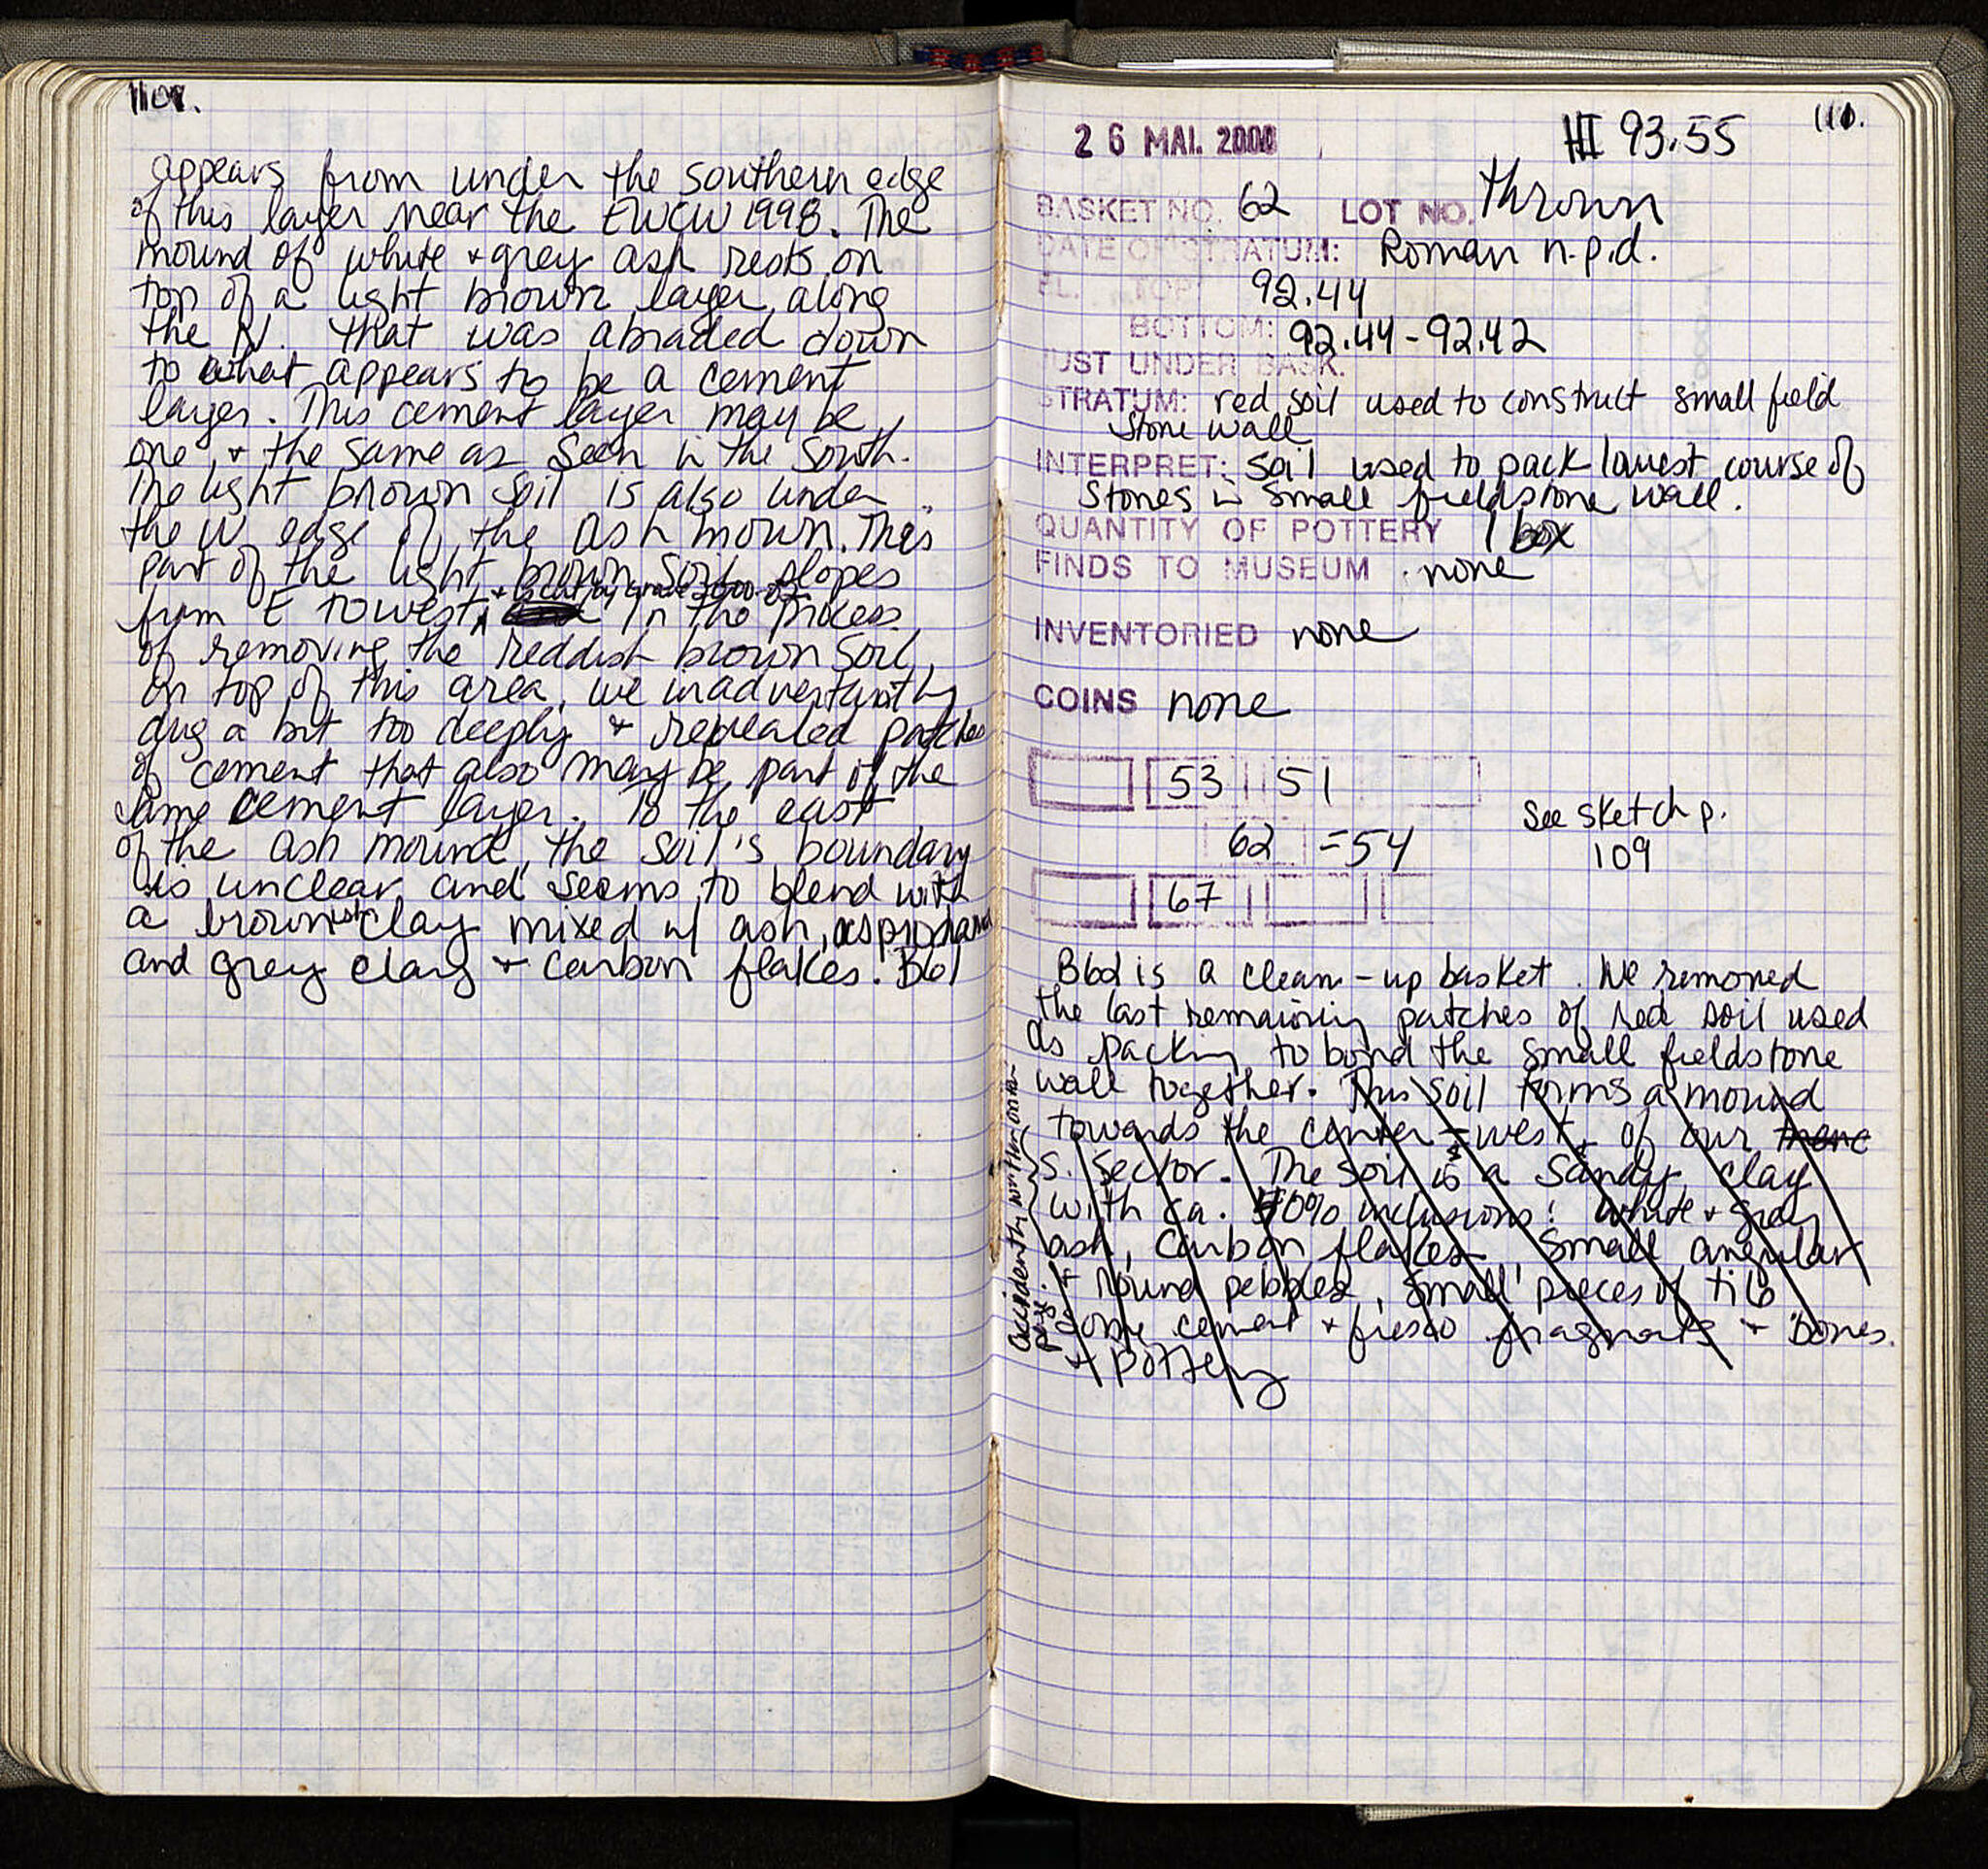 110.
appears from under the southern edge
of this layer near the EWCW 1998. The
mound of white + grey ash rests on
top of a light brown layer along
the N. that was abraded down
to what appears to be a cement
layer. This cement layer may be
one + the same as seen in the South.
The light brown soil is also under
the W edge of the ash moun. This
part of the light brown soil slopes
from E to west, + In the process
of removing the reddish brown soil,
on top of this area, we inadvertantly
dug a bit too deeply + revealed patches
of cement that also may be part of the
same cement layer. To the east
of the ash mound, the soil's boundary
is unclear and seems to blend with
a brownish clay mixed w/ ash,
and grey clay + carbon flakes. B61
111.
26 MAI. 2000
HI 93.55
BASKET NO. 62 LOT NO. thrown
DATE OF STRATUM: Roman n.p.d.
EL. TOP 92.44
BOTTOM: 92.44-92.42
JUST UNDER BASK.
STRATUM: red soil used to construct small field
stone wall
INTERPRET: soil used to pack lowest course of
stones in small fieldstone wall.
QUANTITY OF POTTERY 1 box
FINDS TO MUSEUM none
INVENTORIED none
COINS none
53 51
62 =54
67
See sketch p.
109
B62 is a clean-up basket. We removed
the last remaining patches of red soil used
as packing to bond the small fieldstone
wall together. This soil forms a mound
towards the center-west of our
S. Sector. The soil is a sandy clay
with ca. 40% inclusions: white + gray
ash, carbon flakes, small angular
+ round pebbles, small pieces of tile
some cement + fresco fragments + bones.
+ pottery
accidently written on
page.